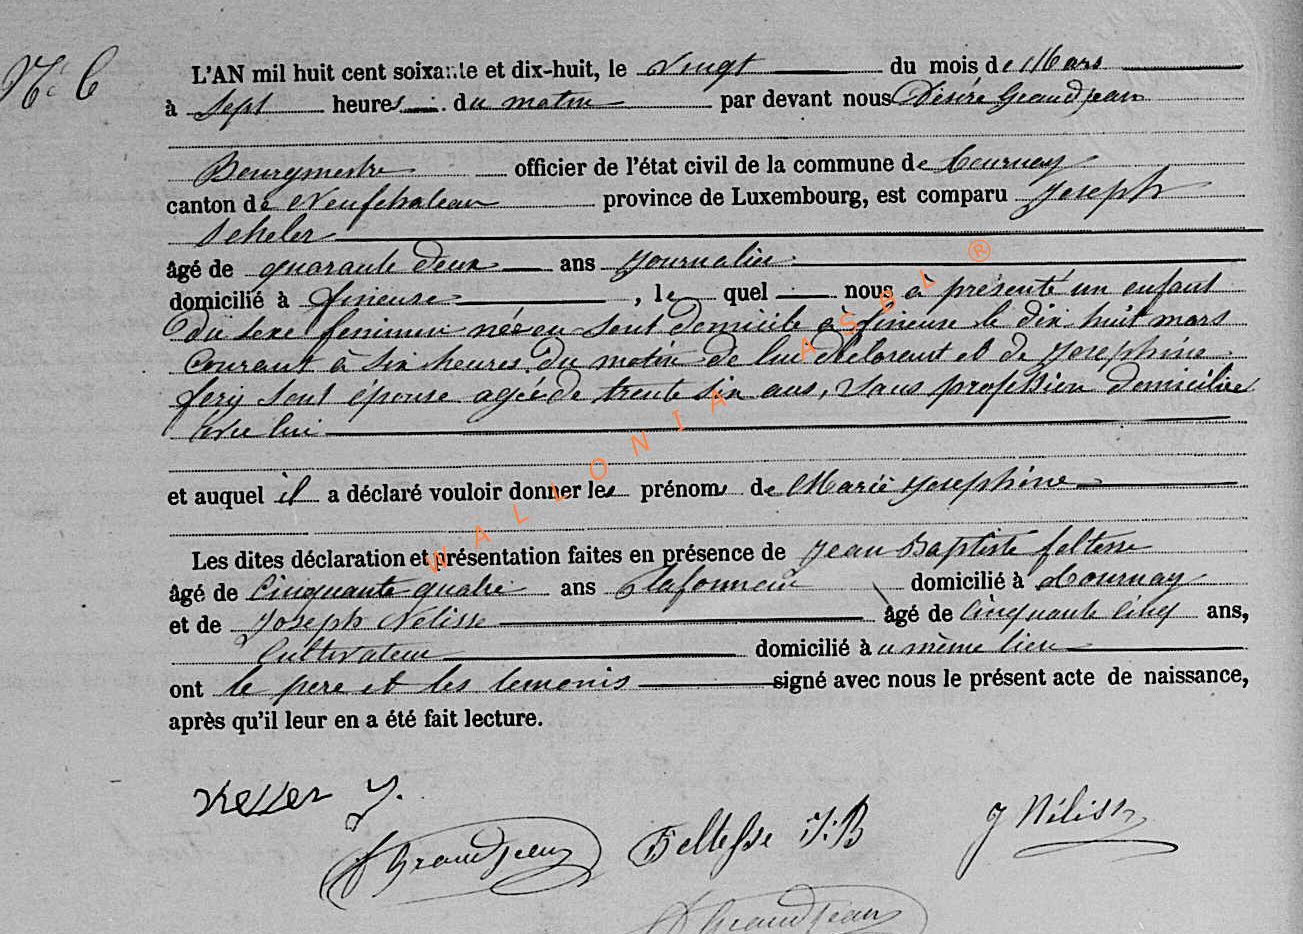 N° 6
L'AN mil huit cent soixante et dix-huit, le vingt du mois de Mars
à sept heures du matin par devant nous Désiré Grandjean
Bourgmestre officier de l'état civil de la commune de Tournay
canton de Neufchateau province de Luxembourg, est comparu Joseph
âgé de quarante deux ans Journalier
domicilié à Lineuse, le quel nous à présenté un enfant
du sexe feminin née en sont domicile à Lineuse le dix huit mars
courant à six heures du matin de lui déclarent et de Josephine
Fery sont épouse agée de trente six ans, sans profession domiciliée
avec lui
et auquel il a déclaré vouloir donner les prénoms de Marie Josephine
Les dites déclaration et présentation faites en présence de Jean Baptiste Feltesse
âgé de Cinquante quatre ans Plafonneur domicilié à Tournay
et de Joseph Nélisse âgé de Cinquante Cinq ans,
Cultivateur domicilié au même lieu
ont le pere et les temonis signé avec nous le présent acte de naissance,
après qu'il leur en a été fait lecture.
J.
D Grandjean Feltesse J:B J Néliss
D Grandjean
WALLONIA ASBL ®